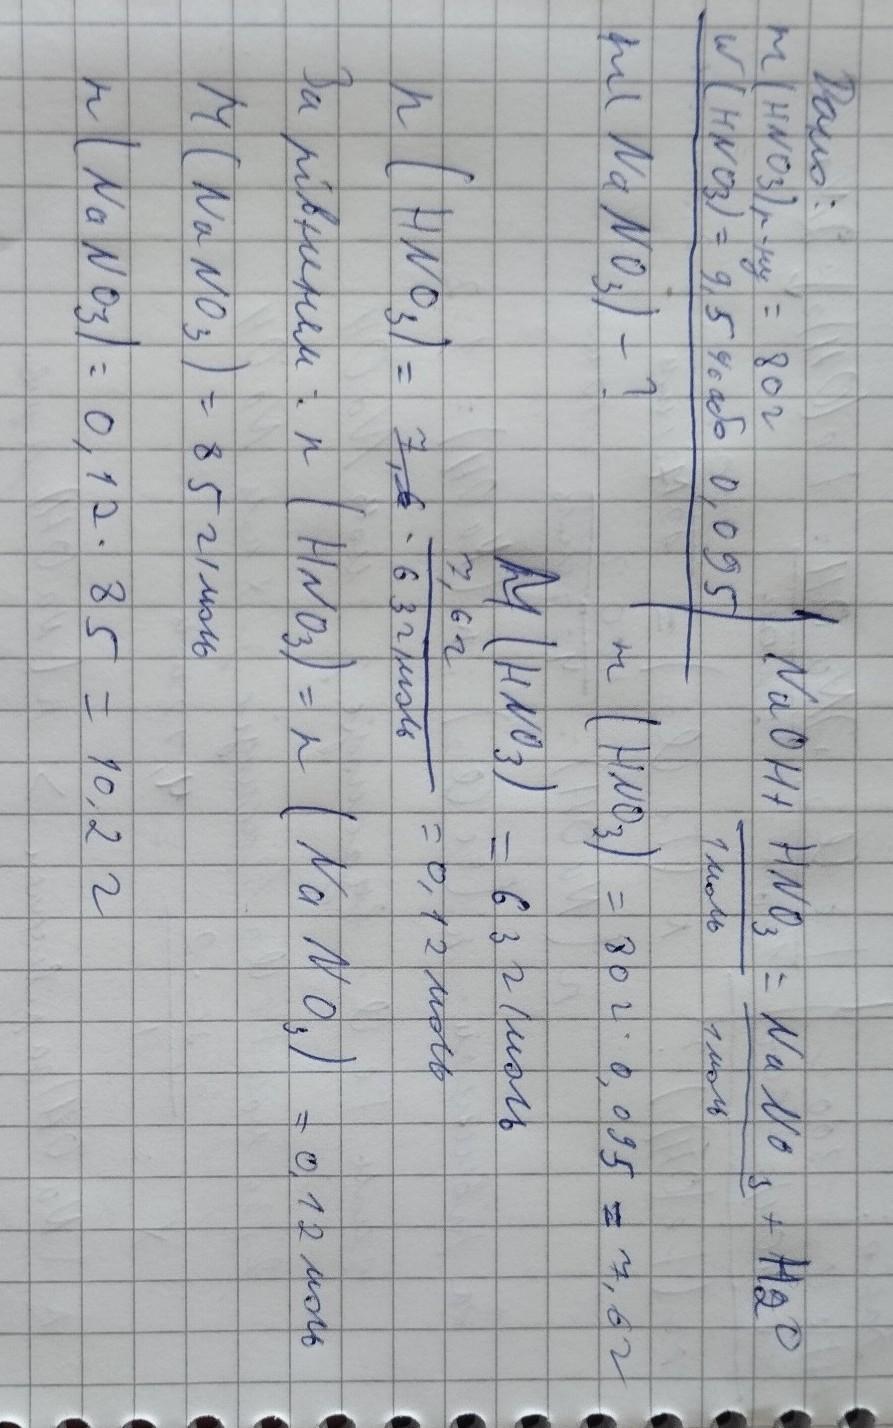 Дано:
m(HNO3)р-ну = 80г
w(HNO3) = 9,5% або 0,095
m(NaNO3) - ?
NaOH + HNO3 = NaNO3 + H2O
1 моль 1 моль
m(HNO3) = 80г · 0,095 = 7,6г
M(HNO3) = 63 г/моль
n(HNO3) = 7,6г / 63г/моль = 0,12 моль
За рівнянням: n(HNO3) = n(NaNO3) = 0,12 моль
M(NaNO3) = 85 г/моль
m(NaNO3) = 0,12 · 85 = 10,2 г